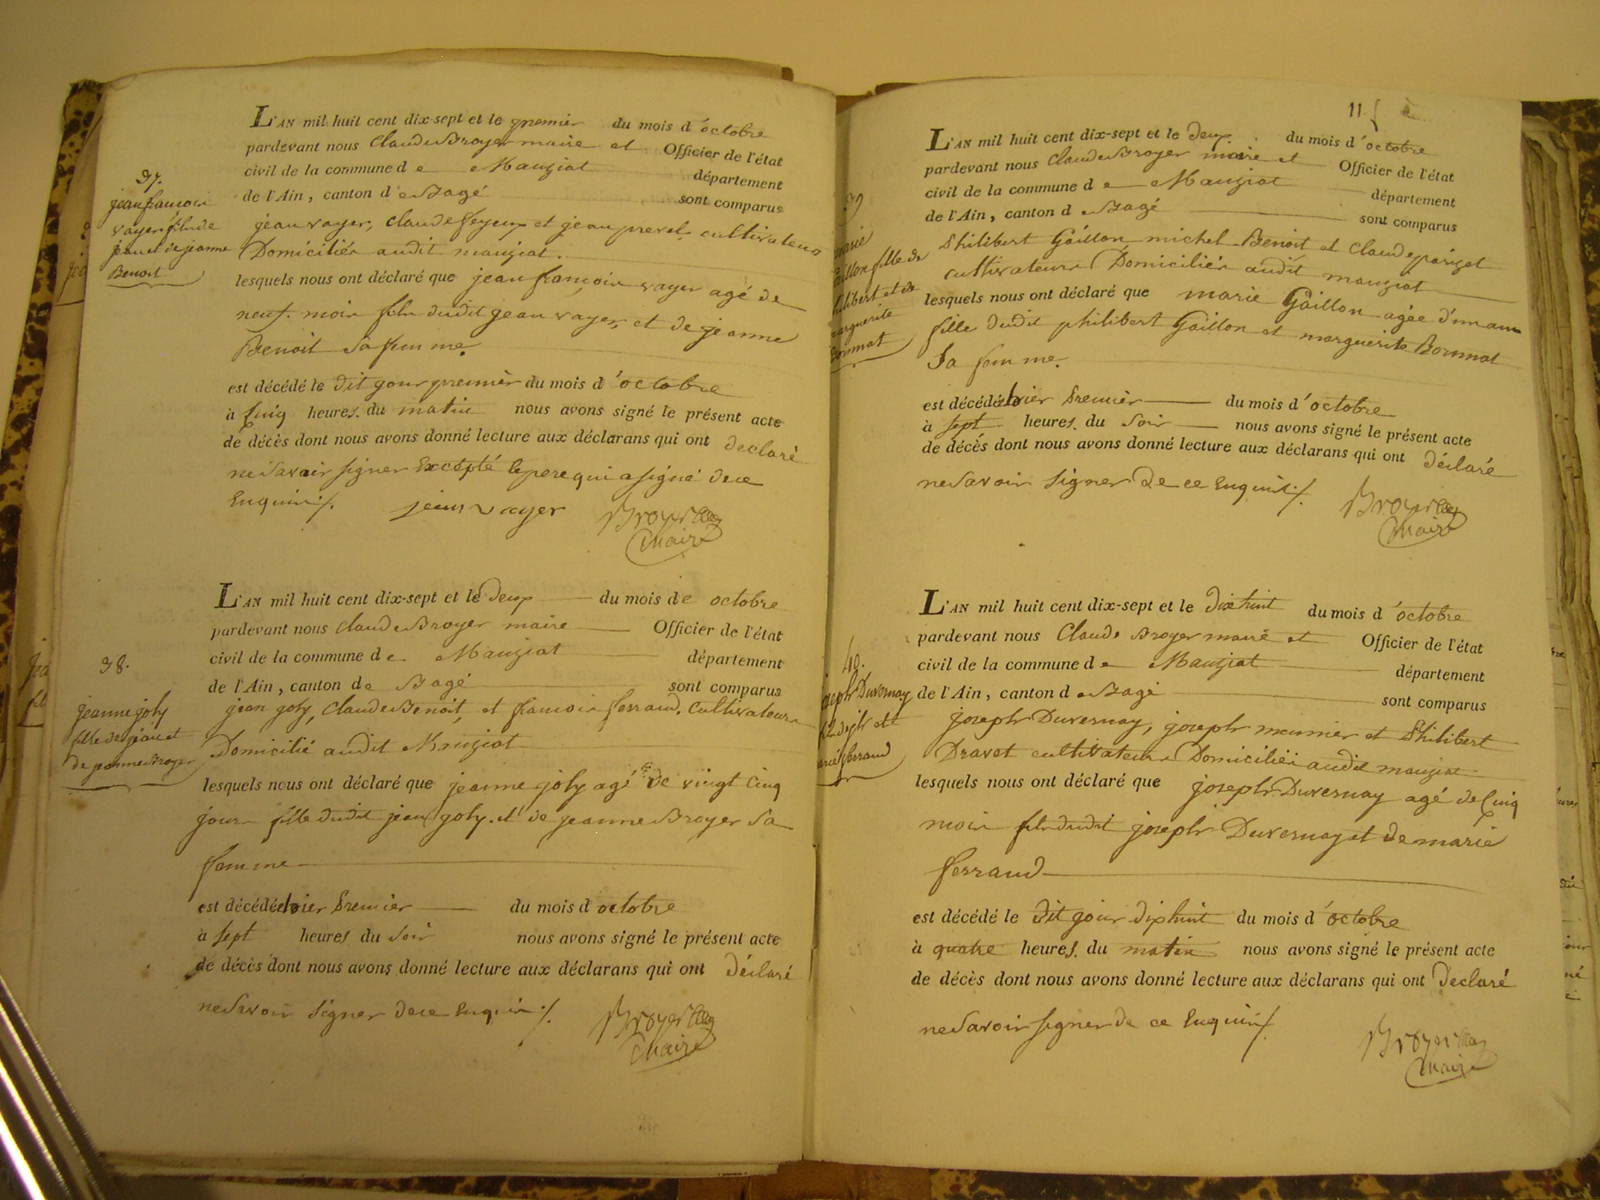 37.
jean françois
vayer fils de
jean et de jeanne
Benoit
L'AN mil huit cent dix-sept et le premier du mois d'octobre
pardevant nous Claude Broyer maire et Officier de l'état
civil de la commune de Manziat département
de l'Ain, canton de Bagé sont comparus
jean vayer, claude feyeux et jean prevel cultivateurs
Domiciliés audit manziat.
lesquels nous ont déclaré que jean françois vayer agé de
neuf mois fils dudit jean vayer et de jeanne
Benoit sa femme.
est décédé le dit jour premier du mois d'octobre
à Cinq heures du matin nous avons signé le présent acte
de décès dont nous avons donné lecture aux déclarans qui ont déclaré
ne savoir signer Excepté le pere qui a signé de ce
Enquis ./. jean vayer Broyer
Maire
38.
jeanne joly
fille de jean et
de jeanne Broyer
L'AN mil huit cent dix-sept et le deux du mois de octobre
pardevant nous Claude Broyer maire Officier de l'état
civil de la commune de Manziat département
de l'Ain, canton de Bagé sont comparus
jean joly, Claude Benoit, et françois ferraud. Cultivateurs
Domicilié audit Manziat
lesquels nous ont déclaré que jeanne joly agé de vingt Cinq
jours fille dudit jean joly. et de jeanne Broyer sa
femme
est décédée hier Premier du mois d octobre
à sept heures du soir nous avons signé le présent acte
de décès dont nous avons donné lecture aux déclarans qui ont déclaré
ne savoir signer de ce Enquis ./. Broyer
Maire
11
39
marie
Gaillon fille de
philibert et de
marguerite
Bommat
L'AN mil huit cent dix-sept et le deux du mois d'octobre
pardevant nous Claude Broyer maire et Officier de l'état
civil de la commune de Manziat département
de l'Ain, canton d Bagé sont comparus
Philibert Gaillon michel Benoit et Claude parizet
cultivateurs Domiciliés audit manziat
lesquels nous ont déclaré que marie Gaillon agée d'un an
fille dudit philibert Gaillon et marguerite Bommat
Sa femme.
est décédée hier Premier du mois d'octobre
à sept heures du soir nous avons signé le présent acte
de décès dont nous avons donné lecture aux déclarans qui ont déclaré
ne savoir signer De ce Enquis ./. Broyer
Maire
40.
joseph Duvernay
fils de joseph et
marie ferraud
L'AN mil huit cent dix-sept et le dix huit du mois d'octobre
pardevant nous Claude Broyer maire et Officier de l'état
civil de la commune de Manziat département
de l'Ain, canton d Bagé sont comparus
joseph Duvernay, joseph meunier et Philibert
Dravet cultivateurs Domiciliés audit manziat
lesquels nous ont déclaré que joseph Duvernay agé de Cinq
mois fils dudit joseph Duvernay et de marie
ferraud
est décédé le dit jour dix huit du mois d'octobre
à quatre heures du matin nous avons signé le présent acte
de décès dont nous avons donné lecture aux déclarans qui ont déclaré
ne savoir signer de ce Enquis ./. Broyer
Maire